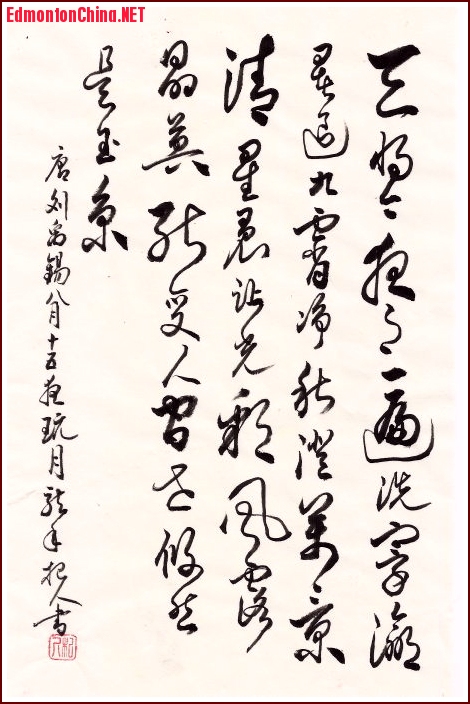 EdmontonChina.NET
天將今夜月一遍洗寰瀛
暑退九霄净秋澄萬景
清星辰让光彩風露
晶英能变人間世翛然
是玉京
唐刘禹錫八月十五夜玩月龙年杞人书